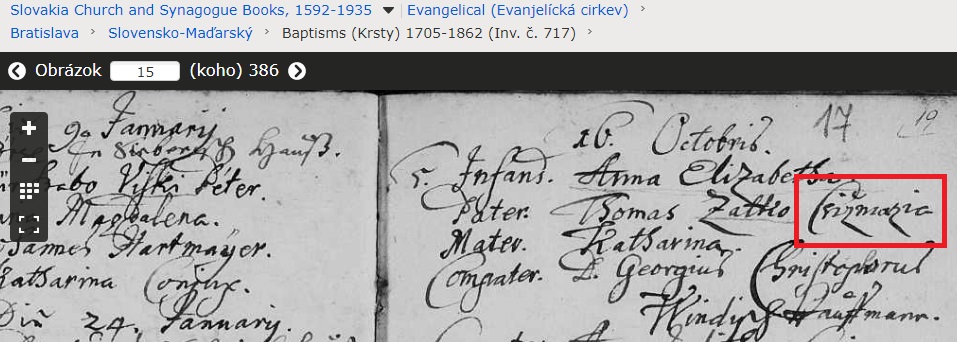 Slovakia Church and Synagogue Books, 1592-1935 Evangelical (Evanjelícká cirkev)
Bratislava Slovensko-Maďarský Baptisms (Krsty) 1705-1862 (Inv. č. 717)
Obrázok 15 (koho) 386
9. January
Hauß.
Péter.
Magdalena.
Hartmayer.
Katharina Conjux.
24. January.
17 19
26. Octobris.
5. Infans. Anna Elizabetha.
Pater. Thomas Zattio Csizmazia
Mater. Katharina.
Compater. D. Georgius Christophorus
Windisch Hauffmann.